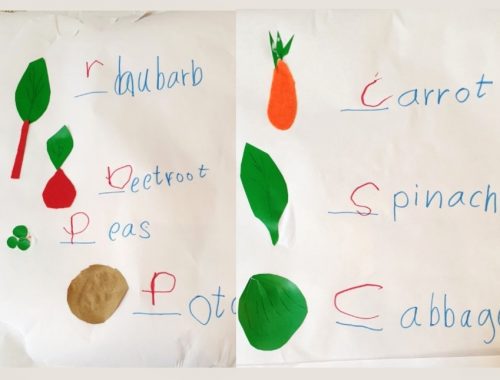 rhubarb
beetroot
Peas
Pota
Carrot
Spinach
Cabbage